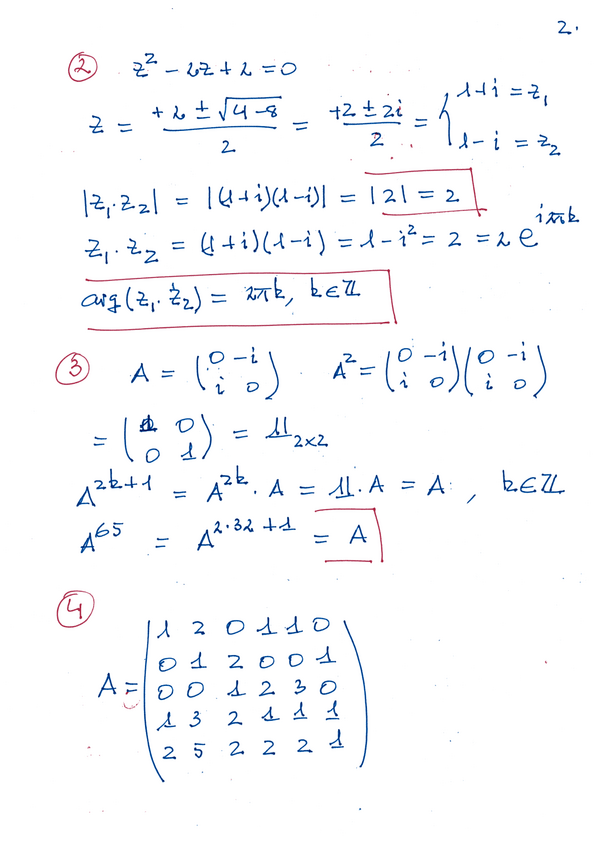 2.
② z² - 2z + 2 = 0
z = (+2 ± √(4-8))/2 = (+2 ± 2i)/2 = { 1+i = z₁
1-i = z₂
|z₁·z₂| = |(1+i)(1-i)| = |2| = 2
z₁·z₂ = (1+i)(1-i) = 1-i² = 2 = 2e^{i2πk}
arg(z₁·z₂) = 2πk, k∈ℤ
③ A = (0 -i; i 0) A² = (0 -i; i 0)(0 -i; i 0)
= (1 0; 0 1) = 𝟙₂ₓ₂
A^{2k+1} = A^{2k} · A = 𝟙·A = A, k∈ℤ
A^{65} = A^{2·32+1} = A
④
1 2 0 1 1 0
0 1 2 0 0 1
A = 0 0 1 2 3 0
1 3 2 1 1 1
2 5 2 2 2 1